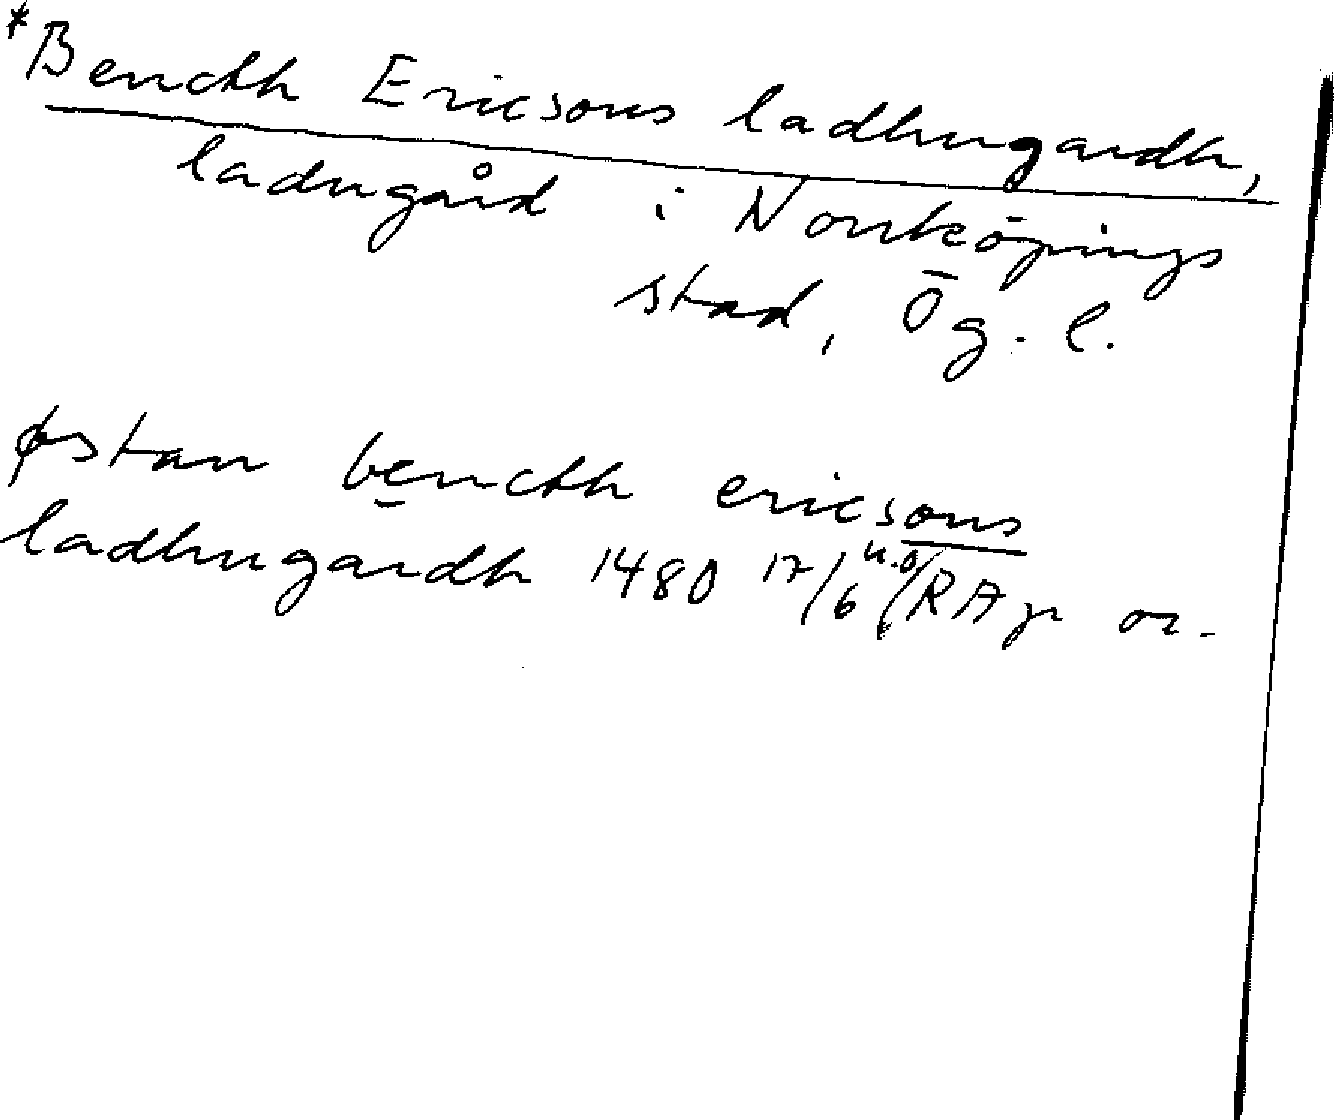 *Bencth Ericsons ladhugardh,
ladugård i Norrköpings
stad, Ög. l.
østan bencth ericsons
ladhugardh 1480 17/6 u.o/RAp or.